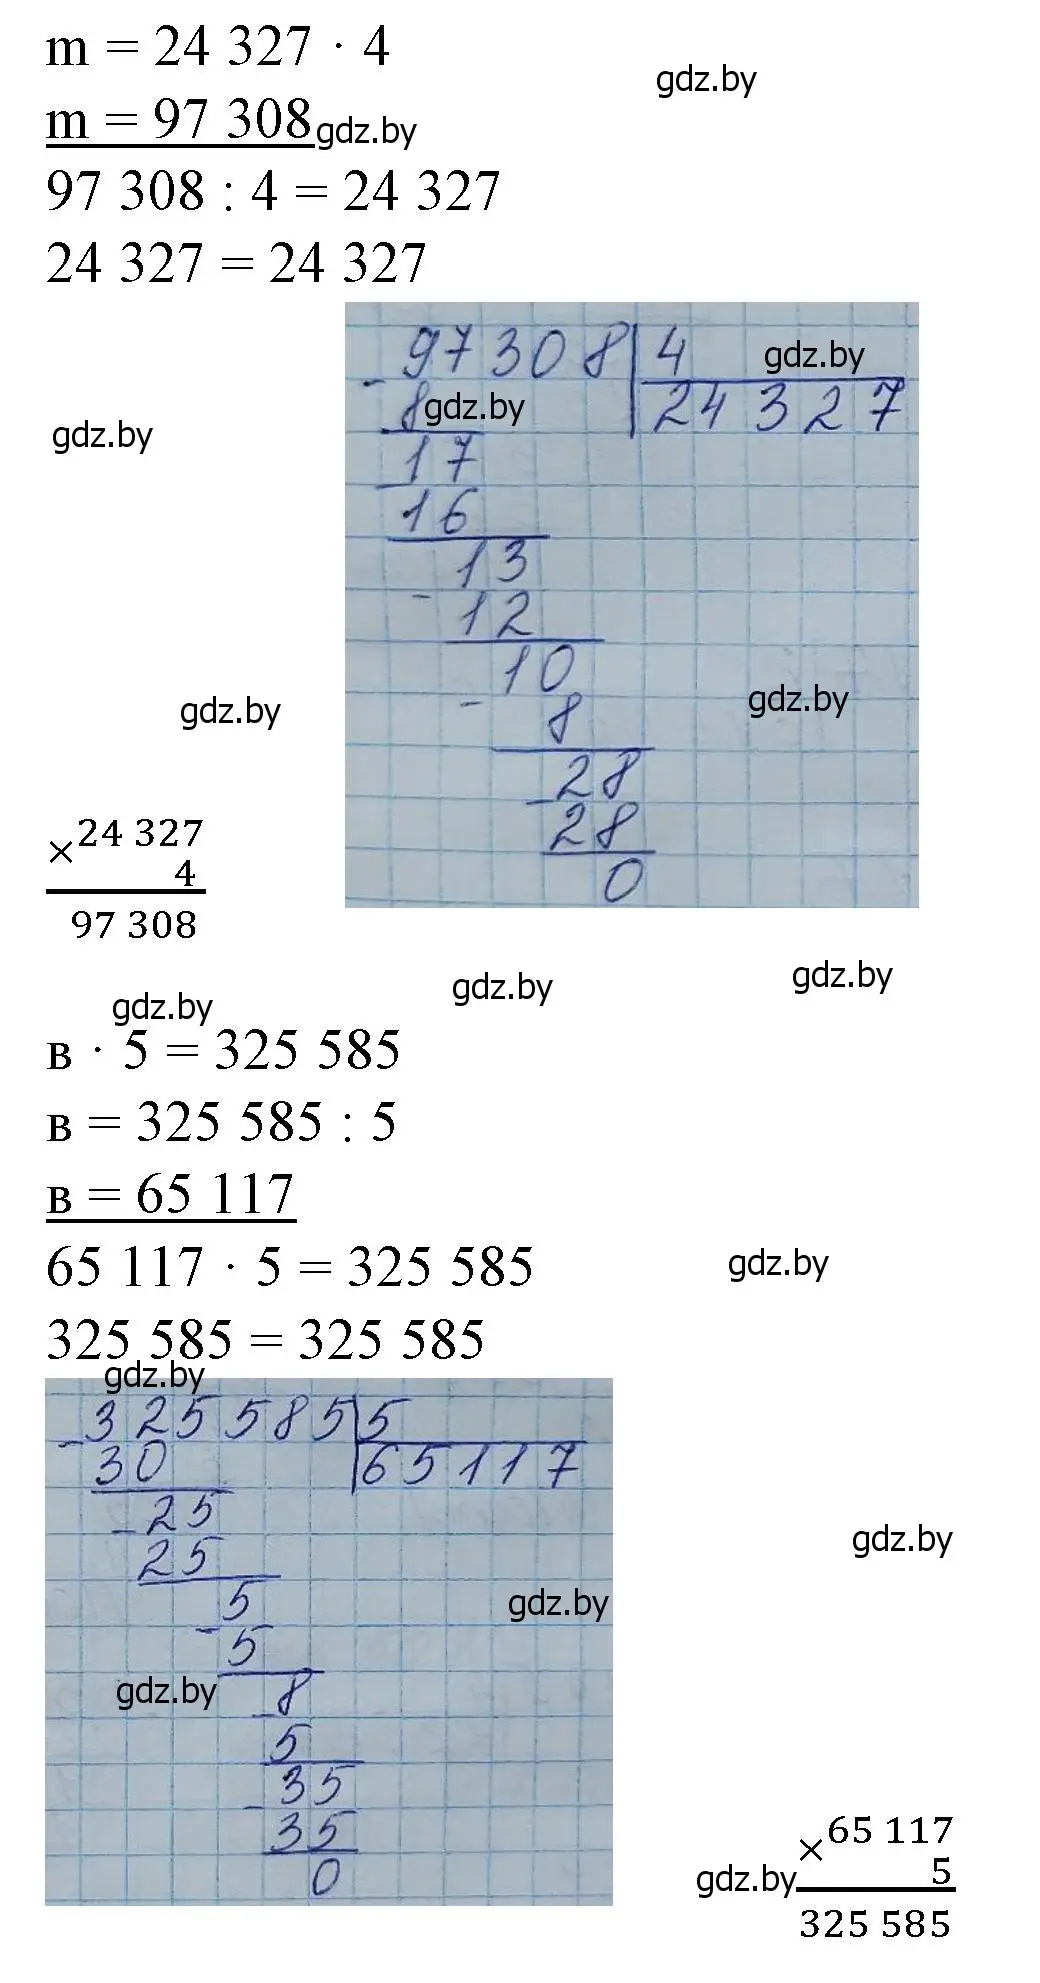 m = 24 327 · 4
gdz.by
m = 97 308
gdz.by
97 308 : 4 = 24 327
24 327 = 24 327
97308 | 4
gdz.by
- 8
24327
gdz.by
gdz.by
17
- 16
13
- 12
10
- 8
gdz.by
gdz.by
28
- 28
0
× 24 327
4
97 308
gdz.by
gdz.by
gdz.by
в · 5 = 325 585
в = 325 585 : 5
в = 65 117
65 117 · 5 = 325 585
gdz.by
325 585 = 325 585
gdz.by
325585 | 5
- 30
65117
- 25
25
gdz.by
- 5
5
gdz.by
gdz.by
- 8
5
- 35
35
0
× 65 117
5
gdz.by
325 585